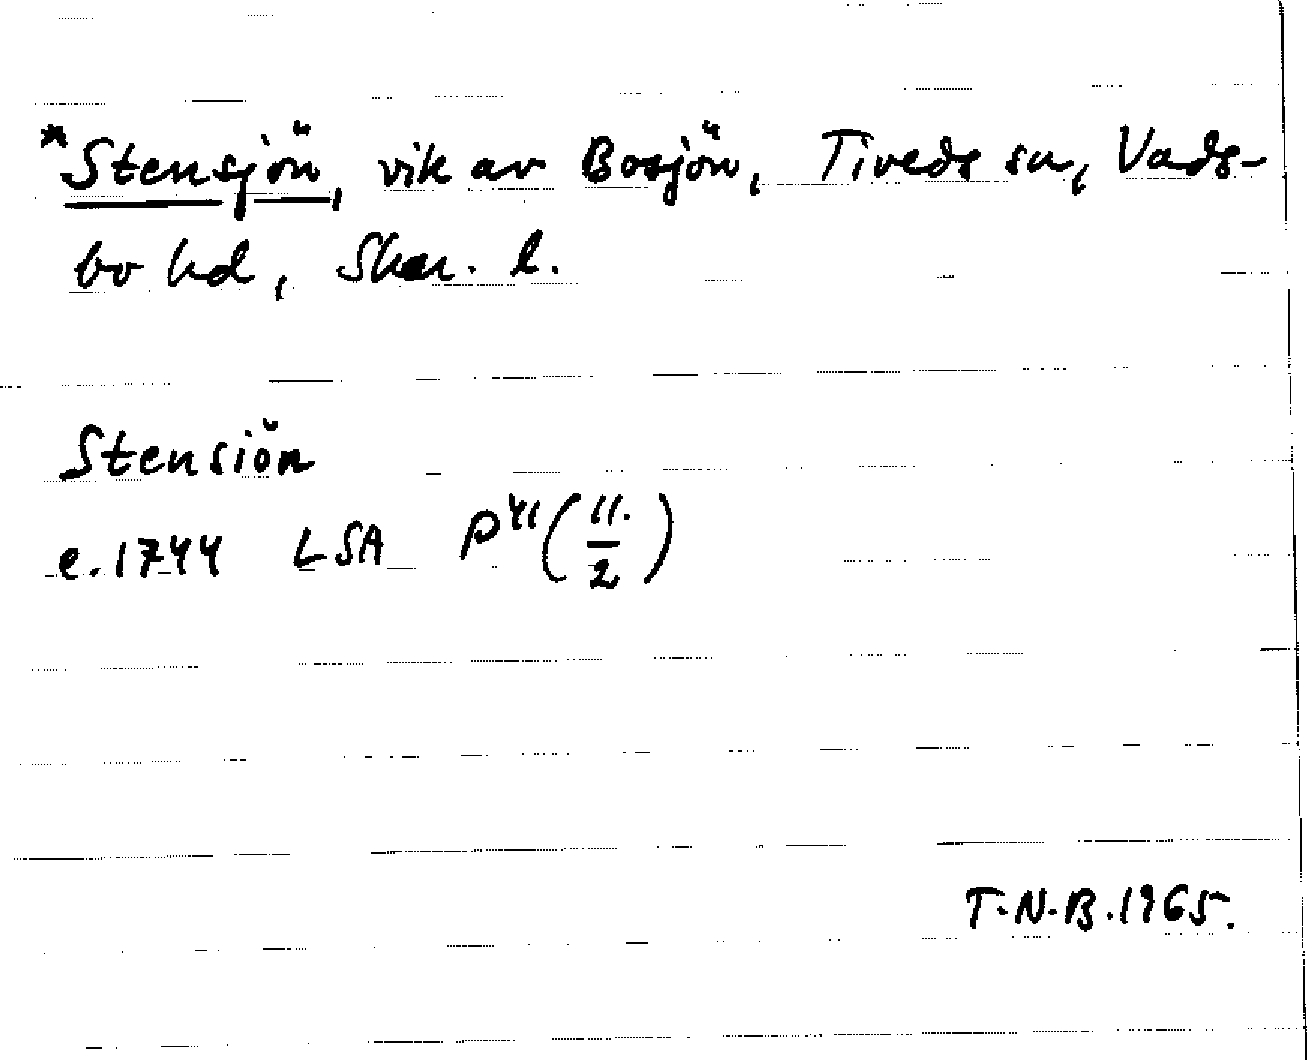 *Stensjön, vik av Bosjön, Tiveds sn, Vads-
bo hd, Skar. l.
Stensiön
e. 1744 LSA P41 (11./2)
T.N.B. 1965.